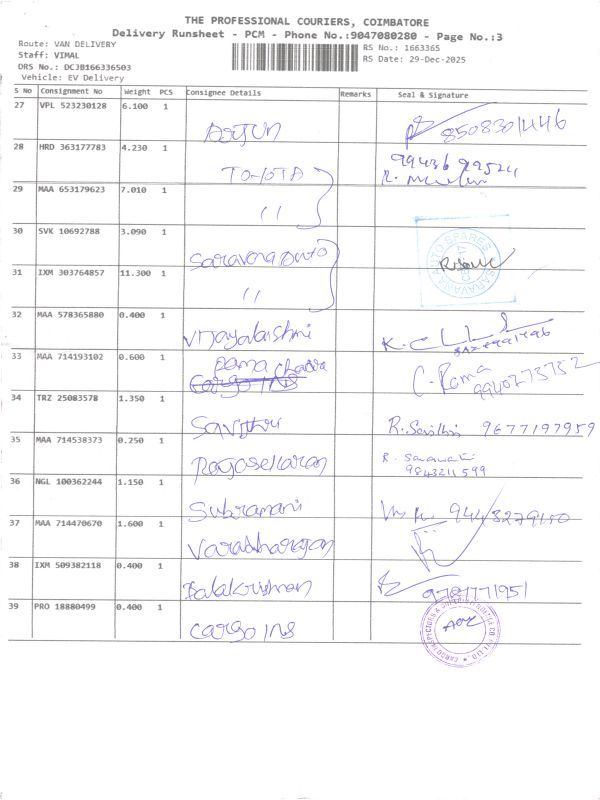 THE PROFESSIONAL COURIERS, COIMBATORE
Delivery Runsheet - PCM - Phone No.:9047080280 - Page No.:3
Route: VAN DELIVERY
RS No.: 1663365
Staff: VIMAL
RS Date: 29-Dec-2025
DRS No.: DCJB166336503
Vehicle: EV Delivery
S No Consignment No Weight PCS Consignee Details Remarks Seal & Signature
27 VPL 523230128 6.100 1
Arjun 8508301446
28 HRD 363177783 4.230 1
99436 99524
TO-IOTA R.
29 MAA 653179623 7.010 1
11
30 SVK 10692788 3.090 1
Saravana auto
31 IXM 303764857 11.300 1
11
32 MAA 578365880 0.400 1
Vijayalakshmi K.
33 MAA 714193102 0.600 1
Rama Chandra C. Rama
Cargo INS 9940273782
34 TRZ 25083578 1.350 1
Savithri R. Savithri 9677197959
35 MAA 714538373 0.250 1
Rajasekaran R. Saraswathi
9843211599
36 NGL 100362244 1.150 1
Subramani 9443279150
37 MAA 714470670 1.600 1
Varadharajan
38 IXM 509382118 0.400 1
Balakrishnan 9787771951
39 PRO 18880499 0.400 1
Cargo INS